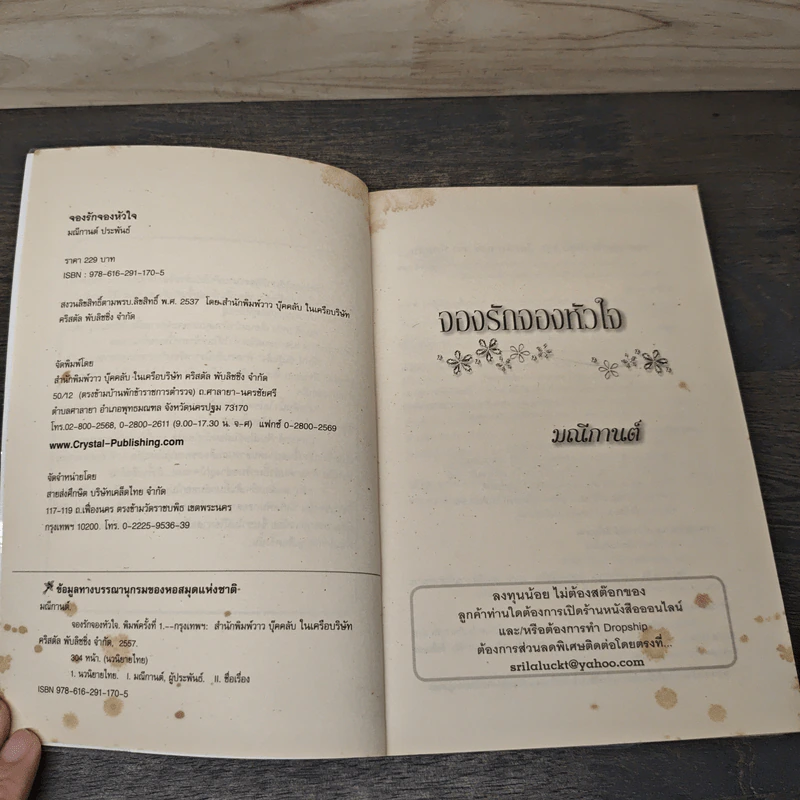 จองรักจองหัวใจ
มณีกานต์ ประพันธ์
ราคา 229 บาท
ISBN : 978-616-291-170-5
สงวนลิขสิทธิ์ตามพรบ.ลิขสิทธิ์ พ.ศ. 2537 โดย-สำนักพิมพ์วาว บุ๊คคลับ ในเครือบริษัท
คริสตัล พับลิชชิ่ง จำกัด
จัดพิมพ์โดย
สำนักพิมพ์วาว บุ๊คคลับ ในเครือบริษัท คริสตัล พับลิชชิ่ง จำกัด
50/12 (ตรงข้ามบ้านพักข้าราชการตำรวจ) ถ.ศาลายา-นครชัยศรี
ตำบลศาลายา อำเภอพุทธมณฑล จังหวัดนครปฐม 73170
โทร.02-800-2568, 0-2800-2611 (9.00-17.30 น. จ-ศ) แฟกซ์ 0-2800-2569
www.Crystal-Publishing.com
จัดจำหน่ายโดย
สายส่งศึกษิต บริษัทเคล็ดไทย จำกัด
117-119 ถ.เฟื่องนคร ตรงข้ามวัดราชบพิธ เขตพระนคร
กรุงเทพฯ 10200. โทร. 0-2225-9536-39
ข้อมูลทางบรรณานุกรมของหอสมุดแห่งชาติ
มณีกานต์.
จองรักจองหัวใจ. พิมพ์ครั้งที่ 1.--กรุงเทพฯ: สำนักพิมพ์วาว บุ๊คคลับ ในเครือบริษัท
คริสตัล พับลิชชิ่ง จำกัด, 2557.
304 หน้า. (นวนิยายไทย)
1. นวนิยายไทย. I. มณีกานต์, ผู้ประพันธ์. II. ชื่อเรื่อง
ISBN 978-616-291-170-5
จองรักจองหัวใจ
มณีกานต์
ลงทุนน้อย ไม่ต้องสต๊อกของ
ลูกค้าท่านใดต้องการเปิดร้านหนังสือออนไลน์
และ/หรือต้องการทำ Dropship
ต้องการส่วนลดพิเศษติดต่อโดยตรงที่...
srilaluckt@yahoo.com